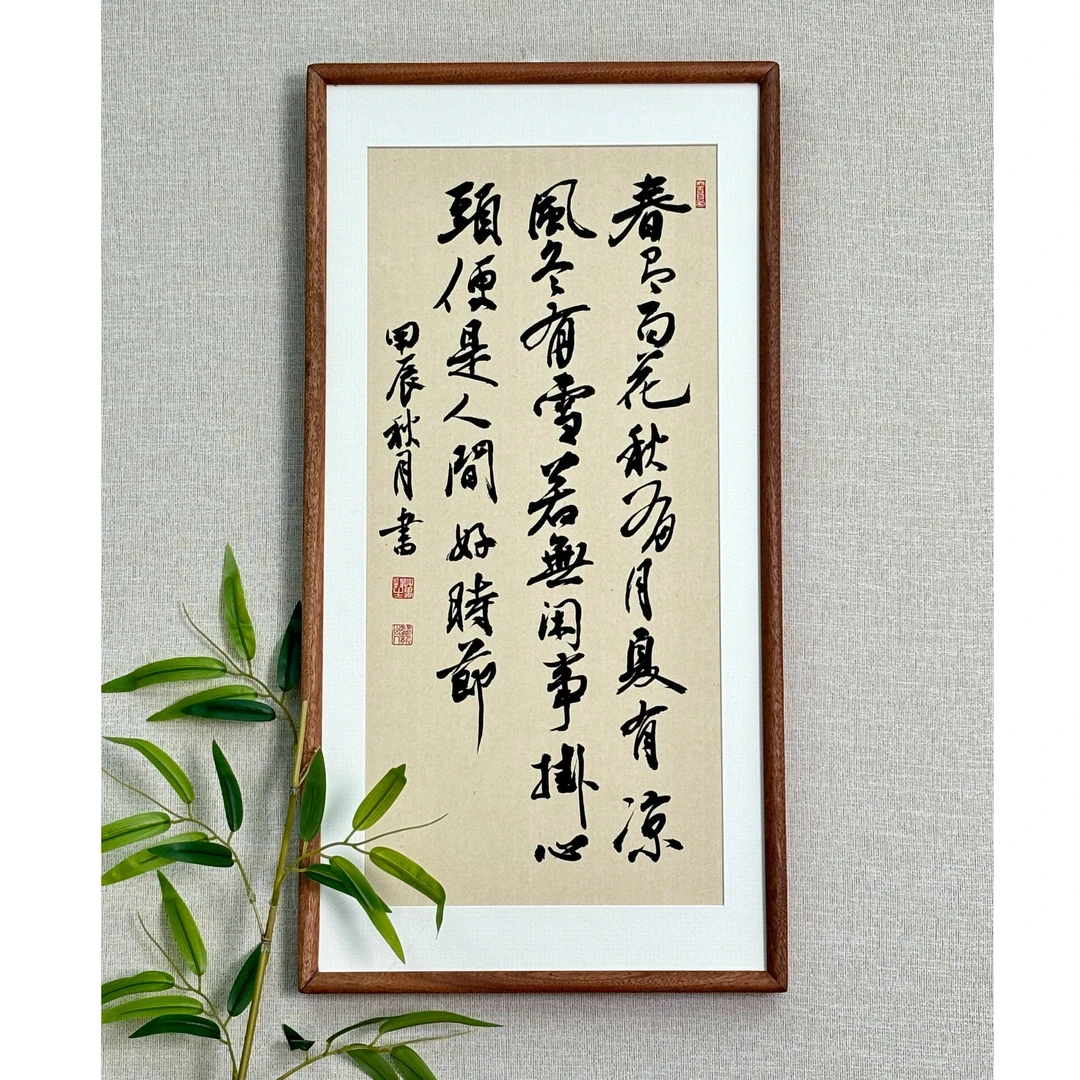 春有百花秋有月夏有凉
風冬有雪若無閑事掛心
頭便是人間好時節
甲辰秋月書